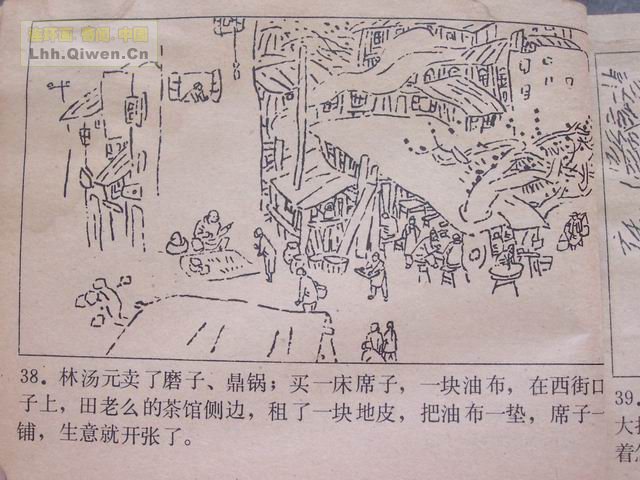 连环画·奇闻·中国
Lhh.Qiwen.Cn
38．林汤元卖了磨子、鼎锅；买一床席子，一块油布，在西街口
子上，田老么的茶馆侧边，租了一块地皮，把油布一垫，席子一
铺，生意就开张了。
39．
大
着